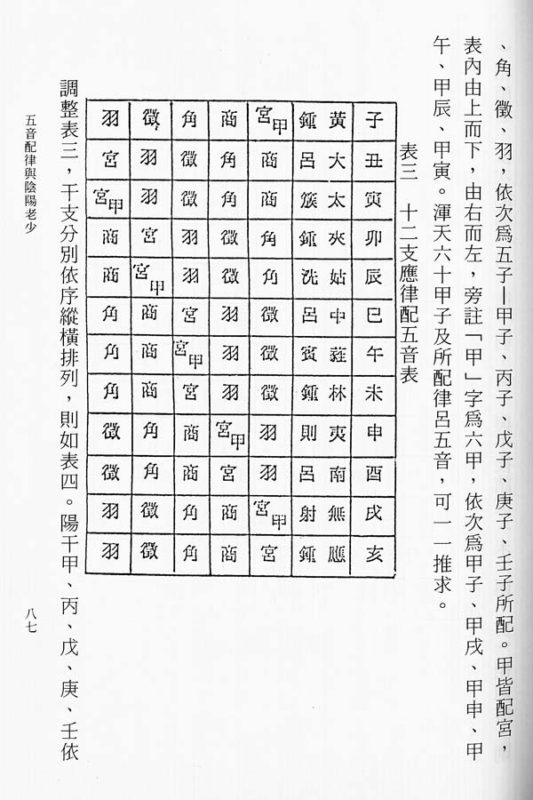 、角、徵、羽，依次為五子—甲子、丙子、戊子、庚子、壬子所配。甲皆配宮，
表內由上而下，由右而左，旁註「甲」字為六甲，依次為甲子、甲戌、甲申、甲
午、甲辰、甲寅。渾天六十甲子及所配律呂五音，可一一推求。
表三 十二支應律配五音表
子 黃鍾 宮甲 商 角 徵 羽
丑 大呂 商 角 徵 羽 宮
寅 太簇 商 角 徵 羽 宮甲
卯 夾鍾 角 徵 羽 宮 商
辰 姑洗 角 徵 羽 宮甲 商
巳 中呂 徵 羽 宮 商 角
午 蕤賓 徵 羽 宮甲 商 角
未 林鍾 徵 羽 宮 商 角
申 夷則 羽 宮甲 商 角 徵
酉 南呂 羽 宮 商 角 徵
戌 無射 宮甲 商 角 徵 羽
亥 應鍾 宮 商 角 徵 羽
調整表三，干支分別依序縱橫排列，則如表四。陽干甲、丙、戊、庚、壬依
五音配律與陰陽老少
八七